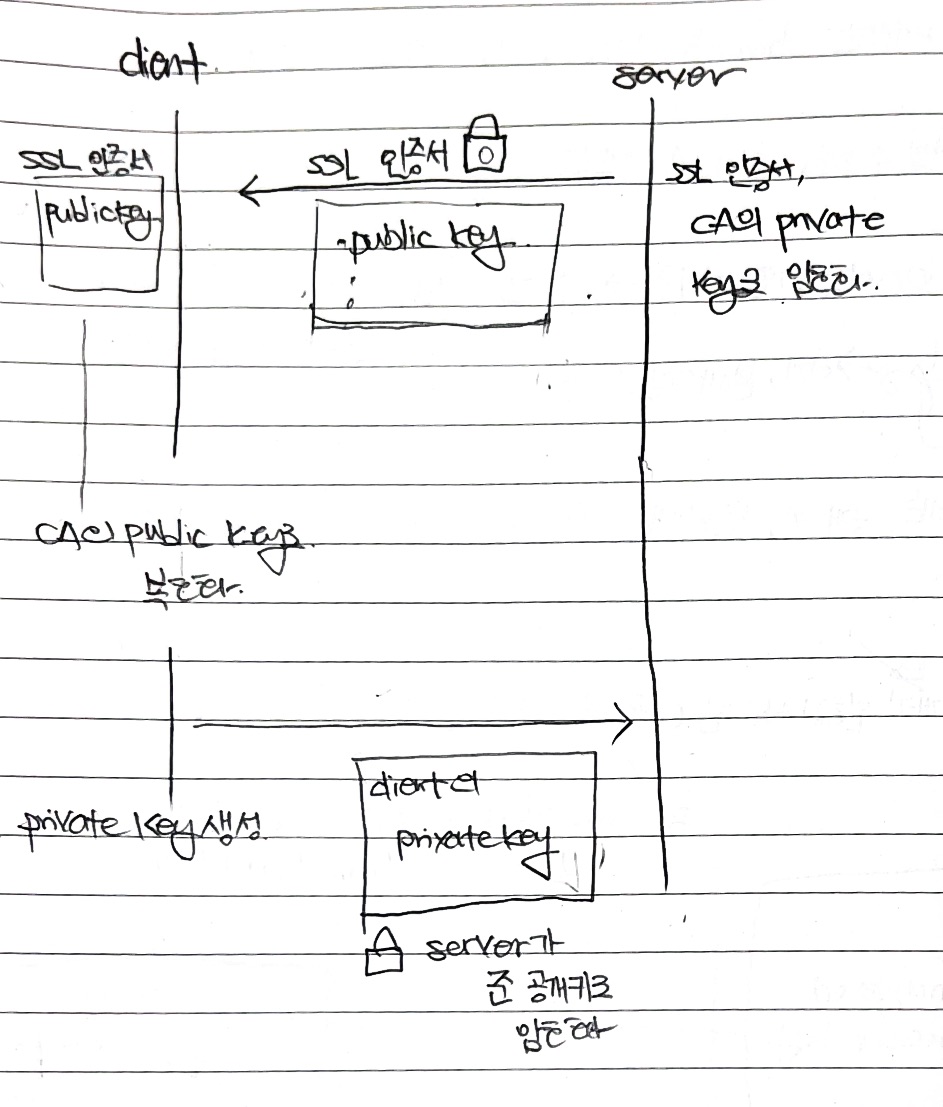 client
server
SSL 인증서
public key
SSL 인증서
public key
SSL 인증서,
CA의 private
key로 암호화.
CA의 public key로
복호화.
private key 생성
client의
private key
server가
준 공개키로
암호화